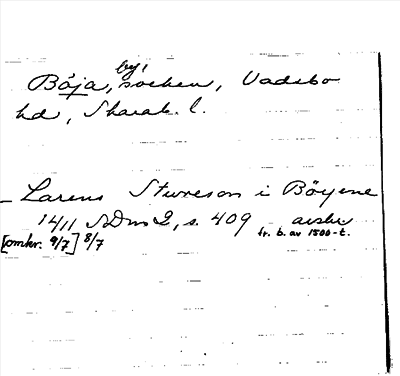 by i
Böja, socken, Vadsbo
hd, Skarab. l.
Larens Stureson i Böyene
14/11 SDns 2, s. 409 avskr
[omkr. 9/7] 8/7 fr. b. av 1500-t.